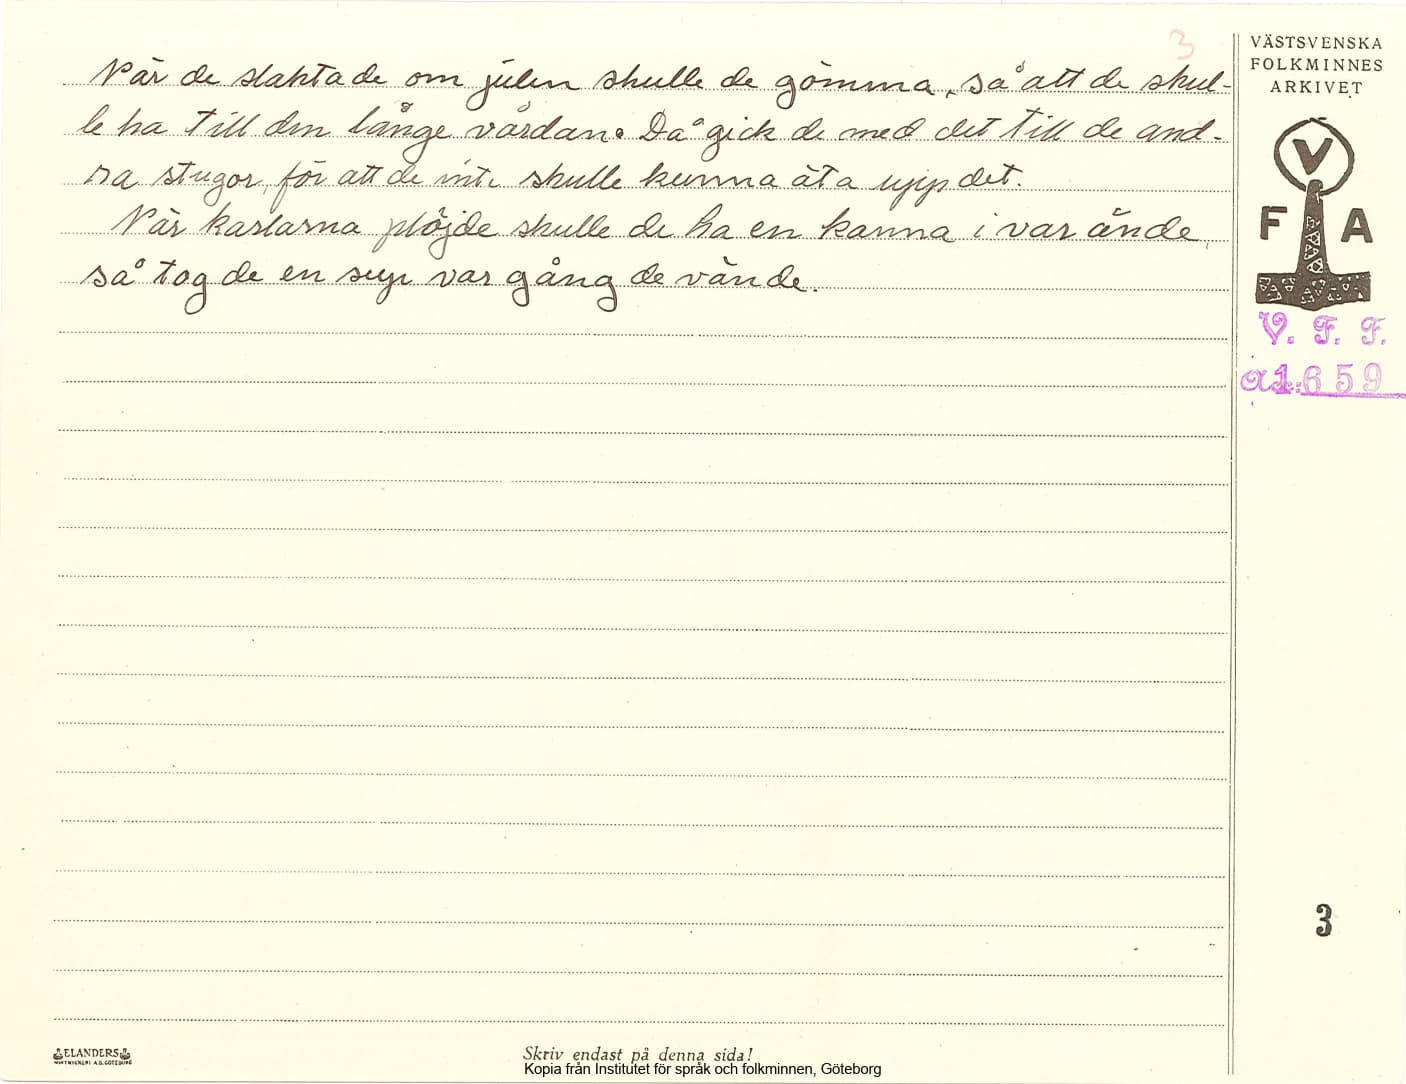 3
När de slaktade om julen skulle de gömma, så att de skul-
le ha till den långe vårdan. Då gick de med det till de and-
ra stugor, för att de inte skulle kunna äta upp det.
När karlarna plöjde skulle de ha en kanna i var ände,
så tog de en sup var gång de vände.
VÄSTSVENSKA
FOLKMINNES
ARKIVET
V
F A
V. F. F.
1659
3
ELANDERS
Skriv endast på denna sida!
Kopia från Institutet för språk och folkminnen, Göteborg